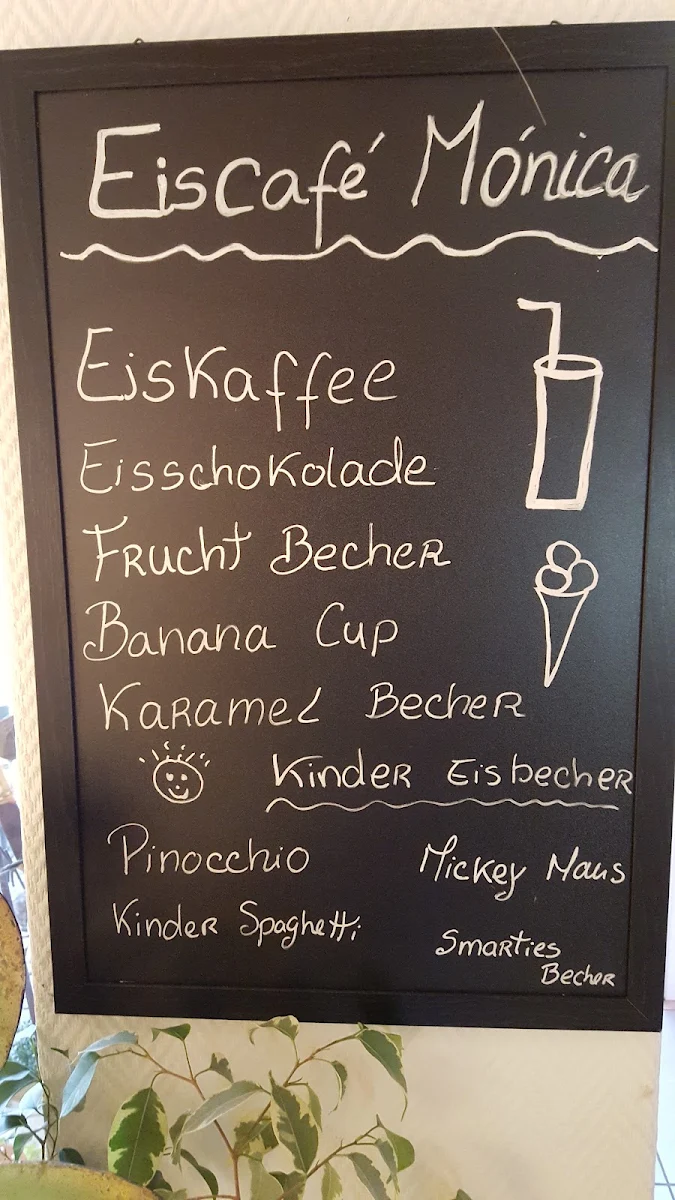 Eiscafé Mónica
Eiskaffee
Eisschokolade
Frucht Becher
Banana Cup
Karamel Becher
Kinder Eisbecher
Pinocchio
Mickey Maus
Kinder Spaghetti
Smarties
Becher